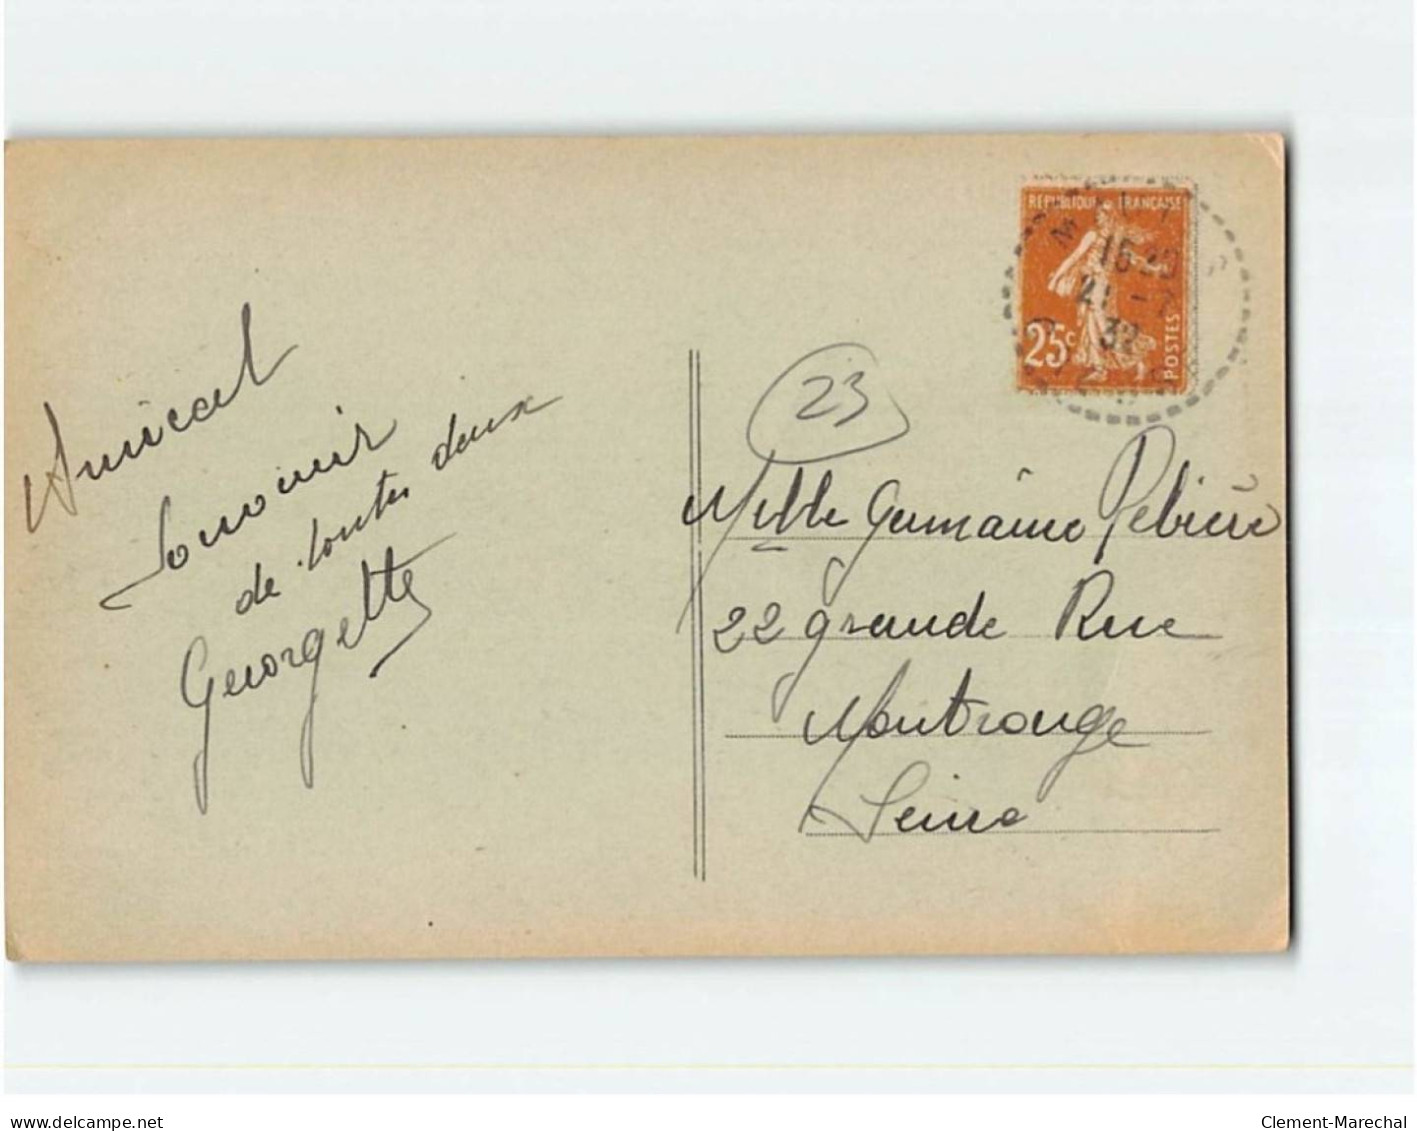 Amical
Souvenir
de toutes deux
Georgette
RÉPUBLIQUE FRANÇAISE
15 30
21 - 7
32
25c
POSTES
23
Melle Germaine Pebière
22 grande Rue
Montrouge
Seine
delcampe.net
Clement-Marechal